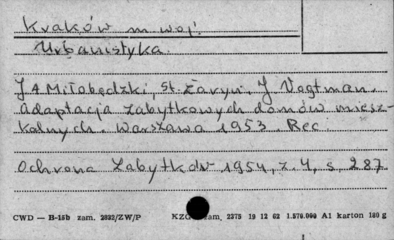 Kraków m. woj.
Urbanistyka.
J A Miłobędzki, St. Żaryn, J Vogtman.
Adaptacja zabytkowych domów miesz-
kalnych. Warszawa 1953. Rec
Ochrona Zabytków 1954, z. 4, s. 287
CWD — B-15b zam. 2832/ZW/P KZG zam. 2375 19 12 62 1.576.000 A1 karton 180 g